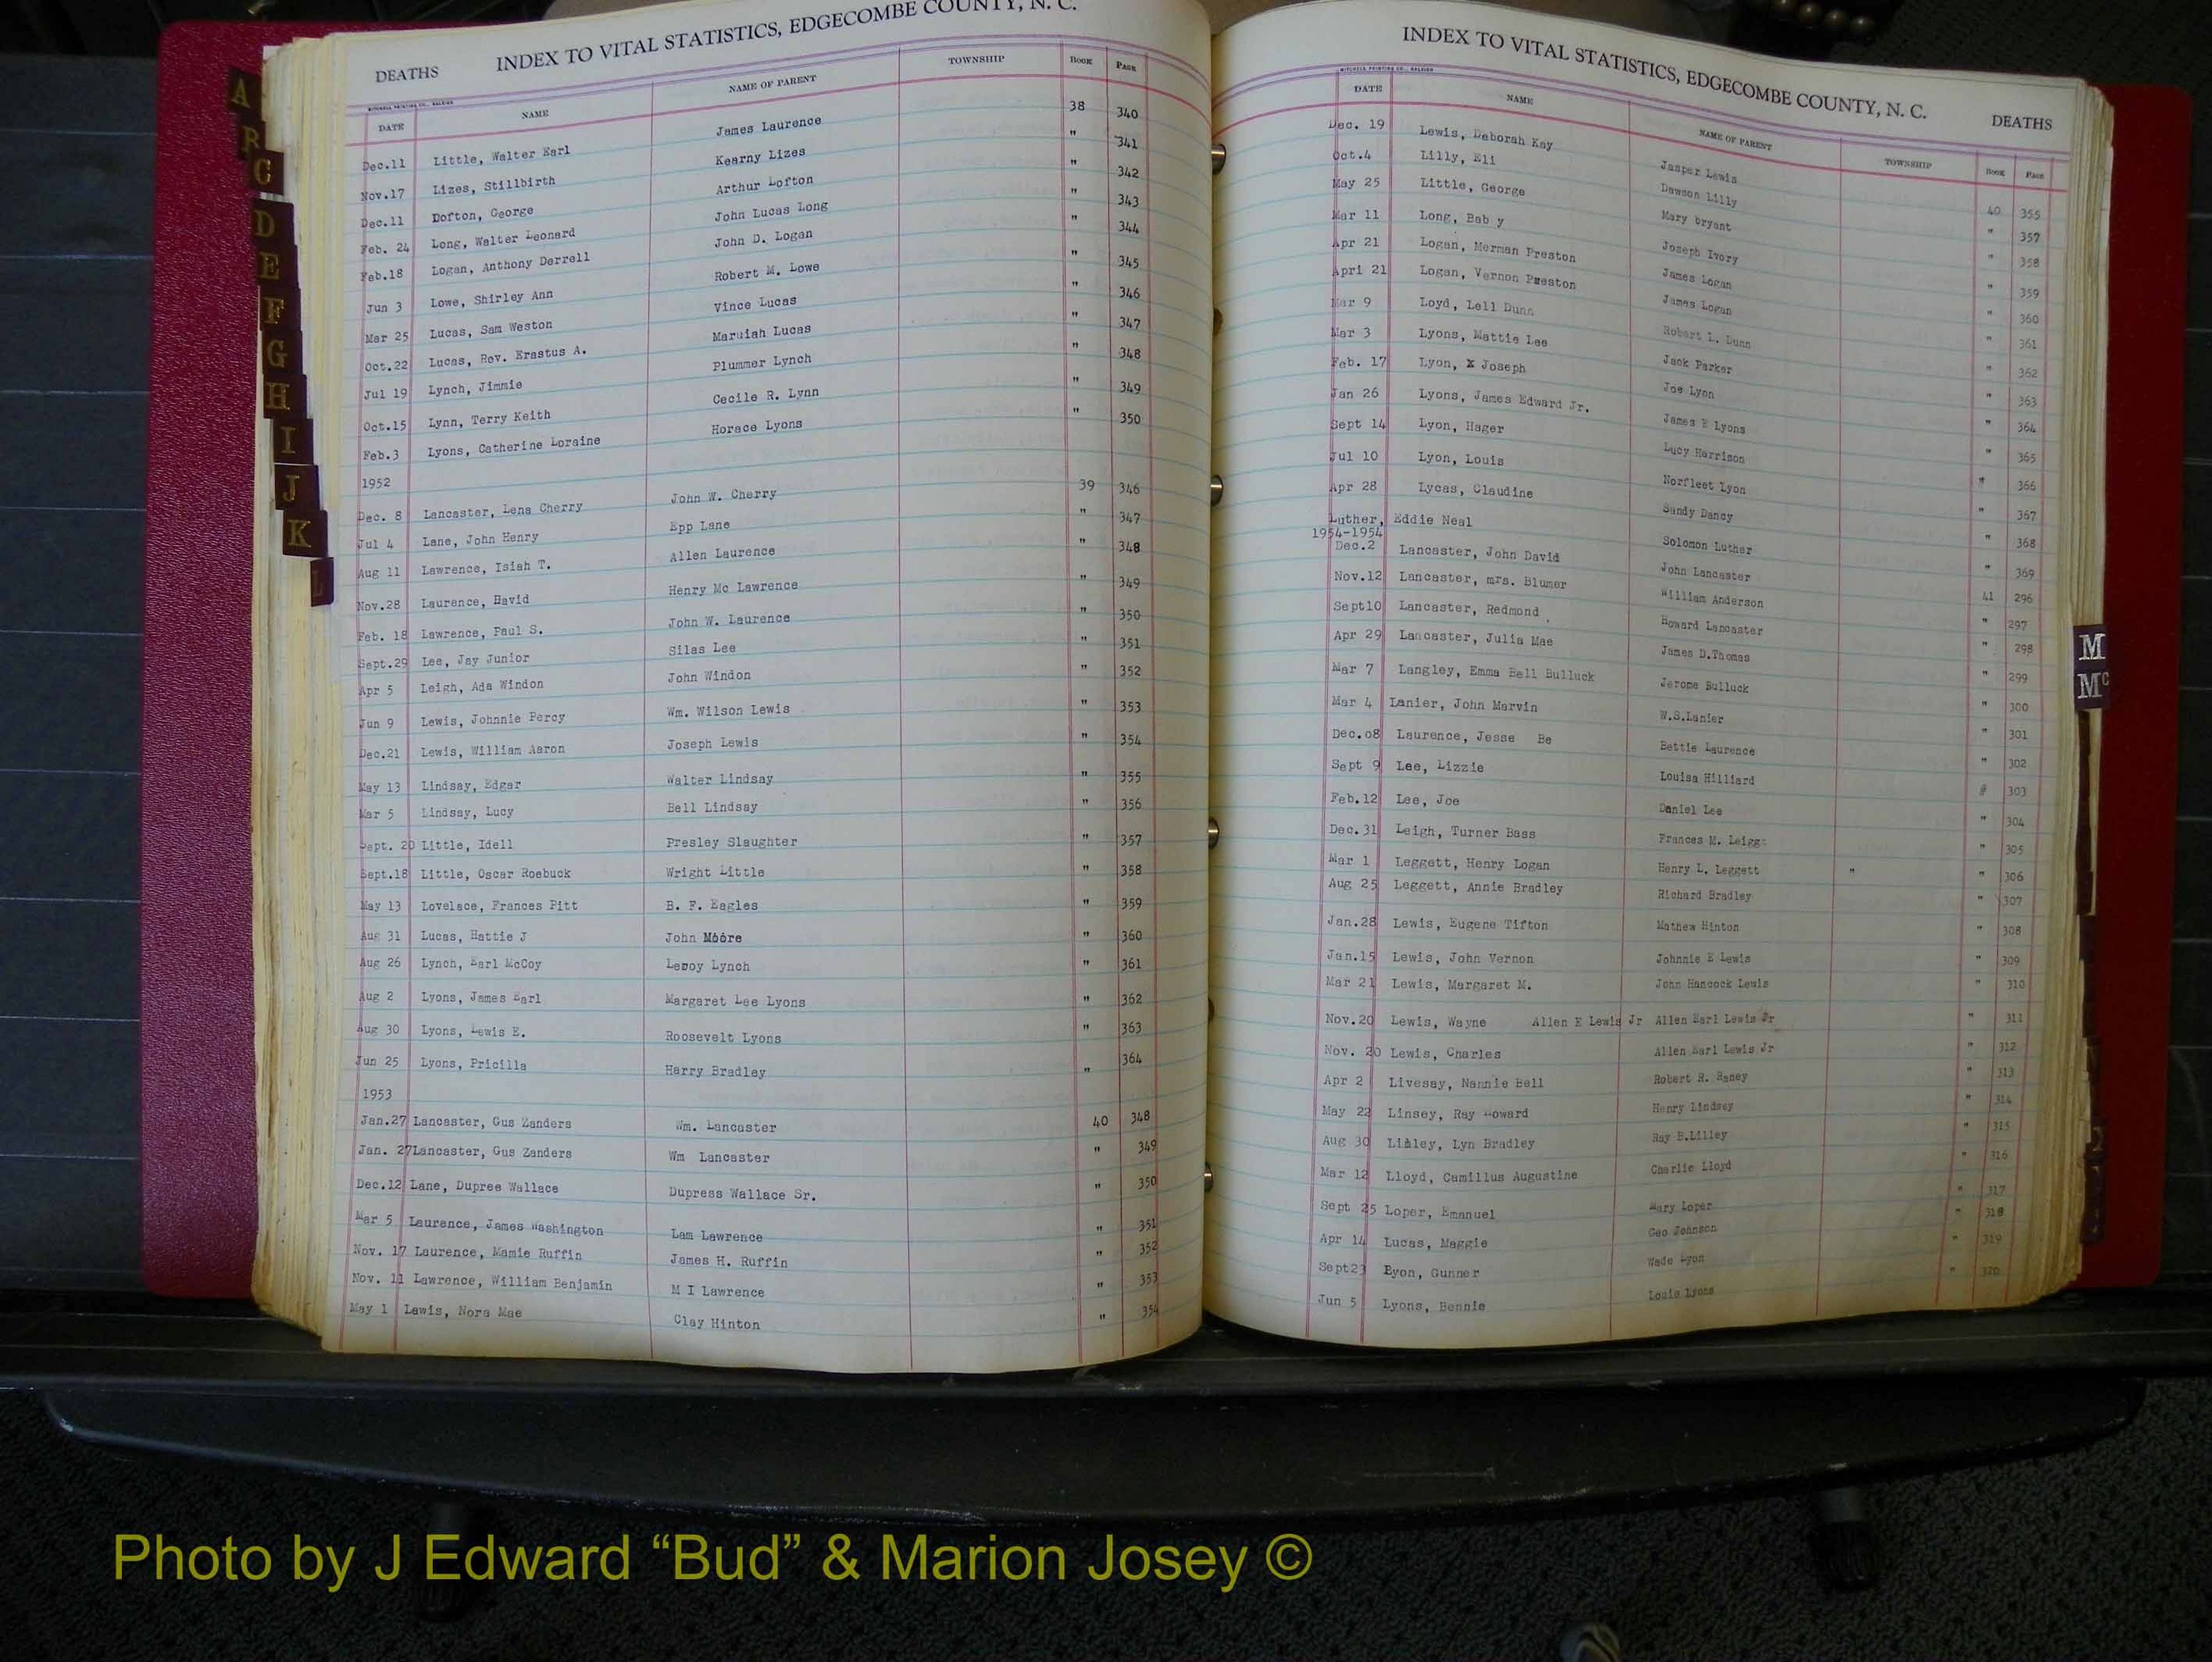 DEATHS INDEX TO VITAL STATISTICS, EDGECOMBE COUNTY, N. C.
MITCHELL PRINTING CO., RALEIGH
DATE NAME NAME OF PARENT TOWNSHIP BOOK PAGE
Dec.11 Little, Walter Earl James Laurence 38 340
Nov.17 Lizes, Stillbirth Kearny Lizes " 341
Dec.11 Dofton, George Arthur Lofton " 342
Feb. 24 Long, Walter Leonard John Lucas Long " 343
Feb.18 Logan, Anthony Derrell John D. Logan " 344
Jun 3 Lowe, Shirley Ann Robert M. Lowe " 345
Mar 25 Lucas, Sam Weston Vince Lucas " 346
Oct.22 Lucas, Rev. Erastus A. Maruiah Lucas " 347
Jul 19 Lynch, Jimmie Plummer Lynch " 348
Oct.15 Lynn, Terry Keith Cecile R. Lynn " 349
Feb.3 Lyons, Catherine Loraine Horace Lyons " 350
1952
Dec. 8 Lancaster, Lena Cherry John W. Cherry 39 346
Jul 4 Lane, John Henry Epp Lane " 347
Aug 11 Lawrence, Isiah T. Allen Laurence " 348
Nov.28 Laurence, David Henry Mc Lawrence " 349
Feb. 18 Lawrence, Paul S. John W. Laurence " 350
Sept.29 Lee, Jay Junior Silas Lee " 351
Apr 5 Leigh, Ada Windon John Windon " 352
Jun 9 Lewis, Johnnie Percy Wm. Wilson Lewis " 353
Dec.21 Lewis, William Aaron Joseph Lewis " 354
May 13 Lindsay, Edgar Walter Lindsay " 355
Mar 5 Lindsay, Lucy Bell Lindsay " 356
Sept. 20 Little, Idell Presley Slaughter " 357
Sept.18 Little, Oscar Roebuck Wright Little " 358
May 13 Lovelace, Frances Pitt B. F. Eagles " 359
Aug 31 Lucas, Hattie J John Moore " 360
Aug 26 Lynch, Earl McCoy Leroy Lynch " 361
Aug 2 Lyons, James Earl Margaret Lee Lyons " 362
Aug 30 Lyons, Lewis E. Roosevelt Lyons " 363
Jun 25 Lyons, Pricilla Harry Bradley " 364
1953
Jan.27 Lancaster, Gus Zanders Wm. Lancaster 40 348
Jan. 27 Lancaster, Gus Zanders Wm Lancaster " 349
Dec.12 Lane, Dupree Wallace Dupress Wallace Sr. " 350
Mar 5 Laurence, James Washington Lam Lawrence " 351
Nov. 17 Laurence, Mamie Ruffin James H. Ruffin " 352
Nov. 11 Lawrence, William Benjamin M I Lawrence " 353
May 1 Lewis, Nora Mae Clay Hinton " 354
INDEX TO VITAL STATISTICS, EDGECOMBE COUNTY, N. C. DEATHS
MITCHELL PRINTING CO., RALEIGH
DATE NAME NAME OF PARENT TOWNSHIP BOOK PAGE
Dec. 19 Lewis, Deborah Kay Jasper Lewis 40 355
Oct.4 Lilly, Eli Dawson Lilly " 357
May 25 Little, George Mary bryant " 358
Mar 11 Long, Bab y Joseph Ivory " 359
Apr 21 Logan, Merman Preston James Logan " 360
Apri 21 Logan, Vernon Preston James Logan " 361
Mar 9 Loyd, Lell Dunn Robert L. Dunn " 362
Mar 3 Lyons, Mattie Lee Jack Parker " 363
Feb. 17 Lyon, X Joseph Joe Lyon " 364
Jan 26 Lyons, James Edward Jr. James E Lyons " 365
Sept 14 Lyon, Hager Lucy Harrison " 366
Jul 10 Lyon, Louis Norfleet Lyon " 367
Apr 28 Lycas, Claudine Sandy Dancy " 368
Luther, Eddie Neal Solomon Luther " 369
1954-1954
Dec.2 Lancaster, John David John Lancaster 41 296
Nov.12 Lancaster, mrs. Blumer William Anderson " 297
Sept10 Lancaster, Redmond Howard Lancaster " 298
Apr 29 Lancaster, Julia Mae James D.Thomas " 299
Mar 7 Langley, Emma Bell Bulluck Jerome Bulluck " 300
Mar 4 Lanier, John Marvin W.S.Lanier " 301
Dec.08 Laurence, Jesse Be Bettie Laurence " 302
Sept 9 Lee, Lizzie Louisa Hilliard # 303
Feb.12 Lee, Joe Daniel Lee " 304
Dec.31 Leigh, Turner Bass Frances M. Leigg " 305
Mar 1 Leggett, Henry Logan Henry L. Leggett " " 306
Aug 25 Leggett, Annie Bradley Richard Bradley " 307
Jan.28 Lewis, Eugene Tifton Mathew Hinton " 308
Jan.15 Lewis, John Vernon Johnnie E Lewis " 309
Mar 21 Lewis, Margaret M. John Hancock Lewis " 310
Nov.20 Lewis, Wayne Allen E Lewis Jr Allen Earl Lewis Jr " 311
Nov. 20 Lewis, Charles Allen Earl Lewis Jr " 312
Apr 2 Livesay, Nannie Bell Robert R. Raney " 313
May 22 Linsey, Ray Howard Henry Lindsey " 314
Aug 30 Lilley, Lyn Bradley Ray B.Lilley " 315
Mar 12 Lloyd, Camillus Augustine Charlie Lloyd " 316
Sept 25 Loper, Emanuel Mary Loper " 317
Apr 14 Lucas, Maggie Geo Johnson " 318
Sept23 Byon, Gunner Wade Lyon " 319
Jun 5 Lyons, Bennie Louie Lyons " 320
A
B
C
D
E
F
G
H
I
J
K
L
M
Mc
Photo by J Edward “Bud” & Marion Josey ©